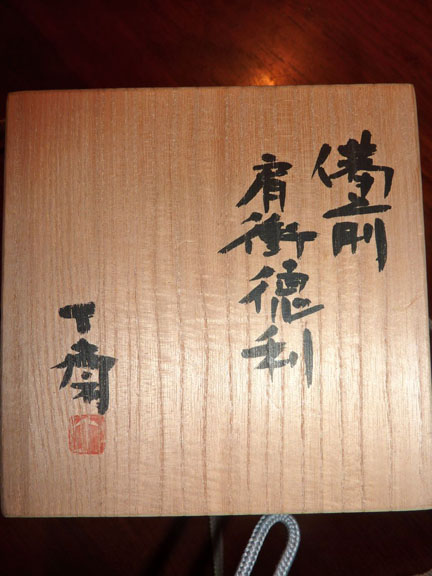 備前
肩衝徳利
丁斎